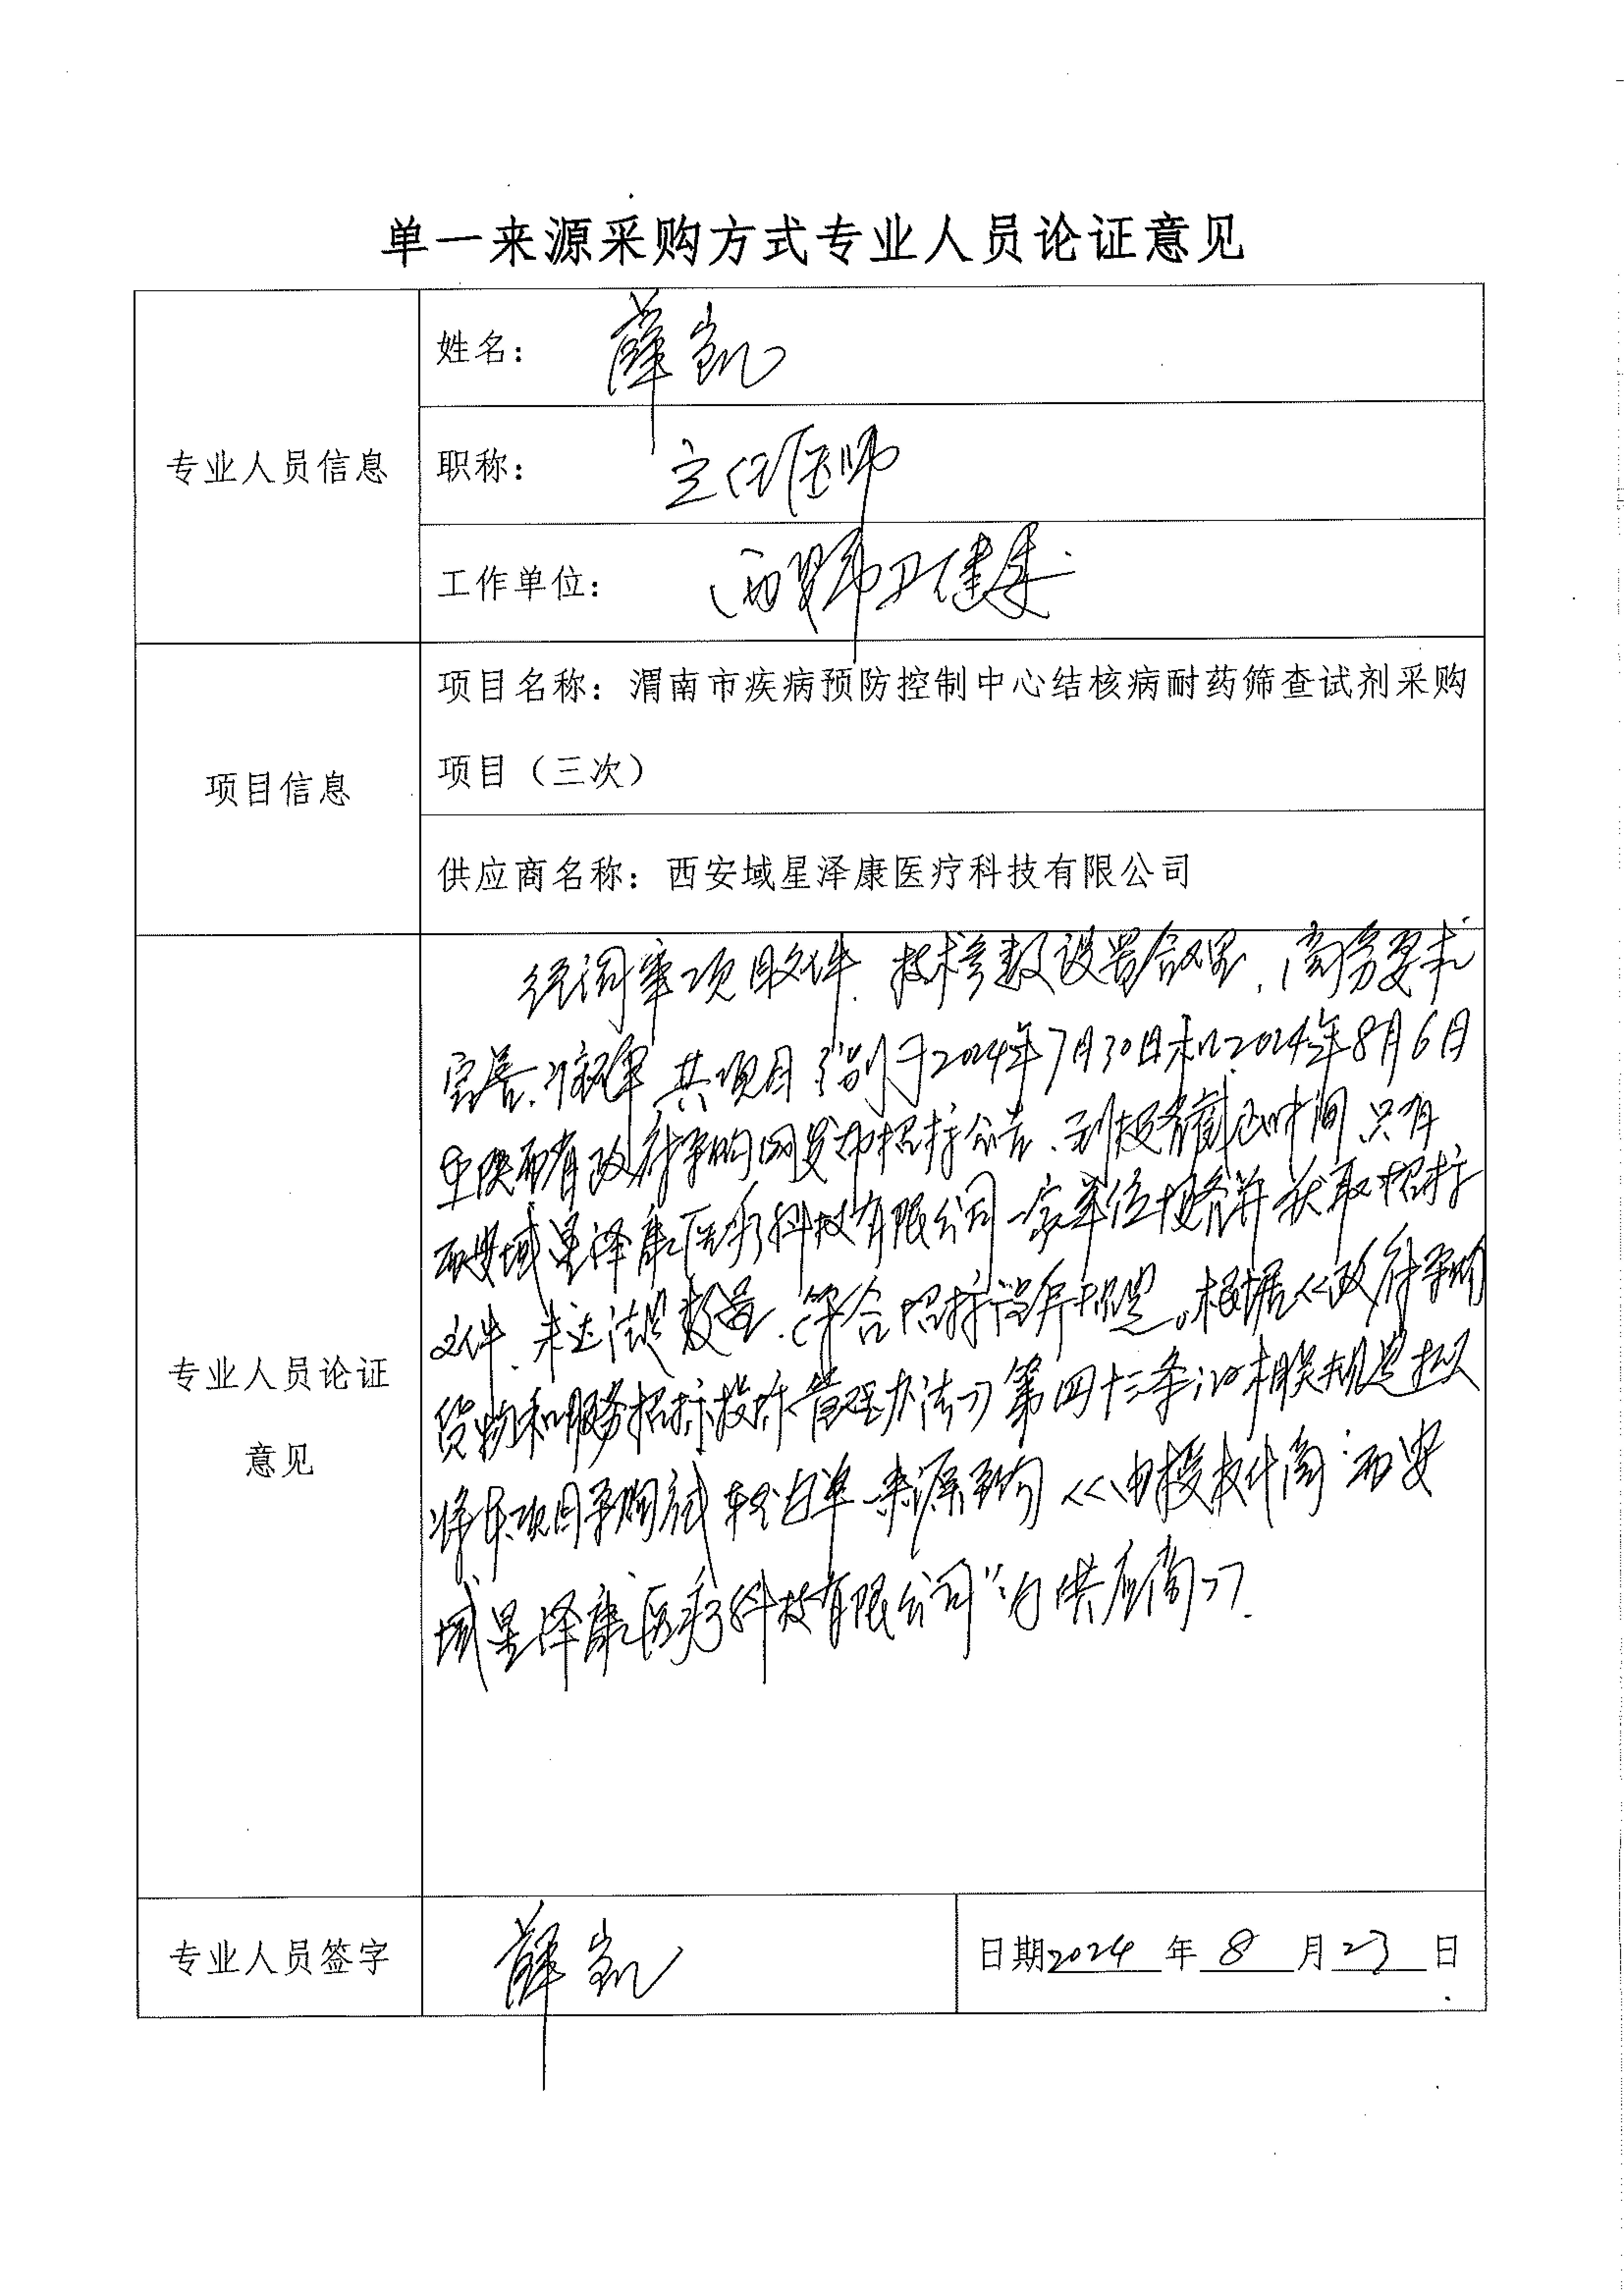 单一来源采购方式专业人员论证意见
专业人员信息
姓名： 薛凯
职称： 主任医师
工作单位： 西安市卫健委
项目信息
项目名称：渭南市疾病预防控制中心结核病耐药筛查试剂采购
项目（三次）
供应商名称：西安域星泽康医疗科技有限公司
专业人员论证
意见
经阅本项目文件，技术参数设置合理，商务要求
完善、该项目分别于2024年7月30日和2024年8月6日
在陕西省政府采购网发布招标公告，到投标截止时间只有
西安域星泽康医疗科技有限公司一家单位投标并获取招标
文件，未达法定数量，符合招标程序规定。根据《政府采购
货物和服务招标投标管理办法》第四十三条的相关规定拟
将本项目采购方式转为单一来源采购《由授权代商"西安
域星泽康医疗科技有限公司"为供应商》.
专业人员签字
薛凯
日期2024年8月23日